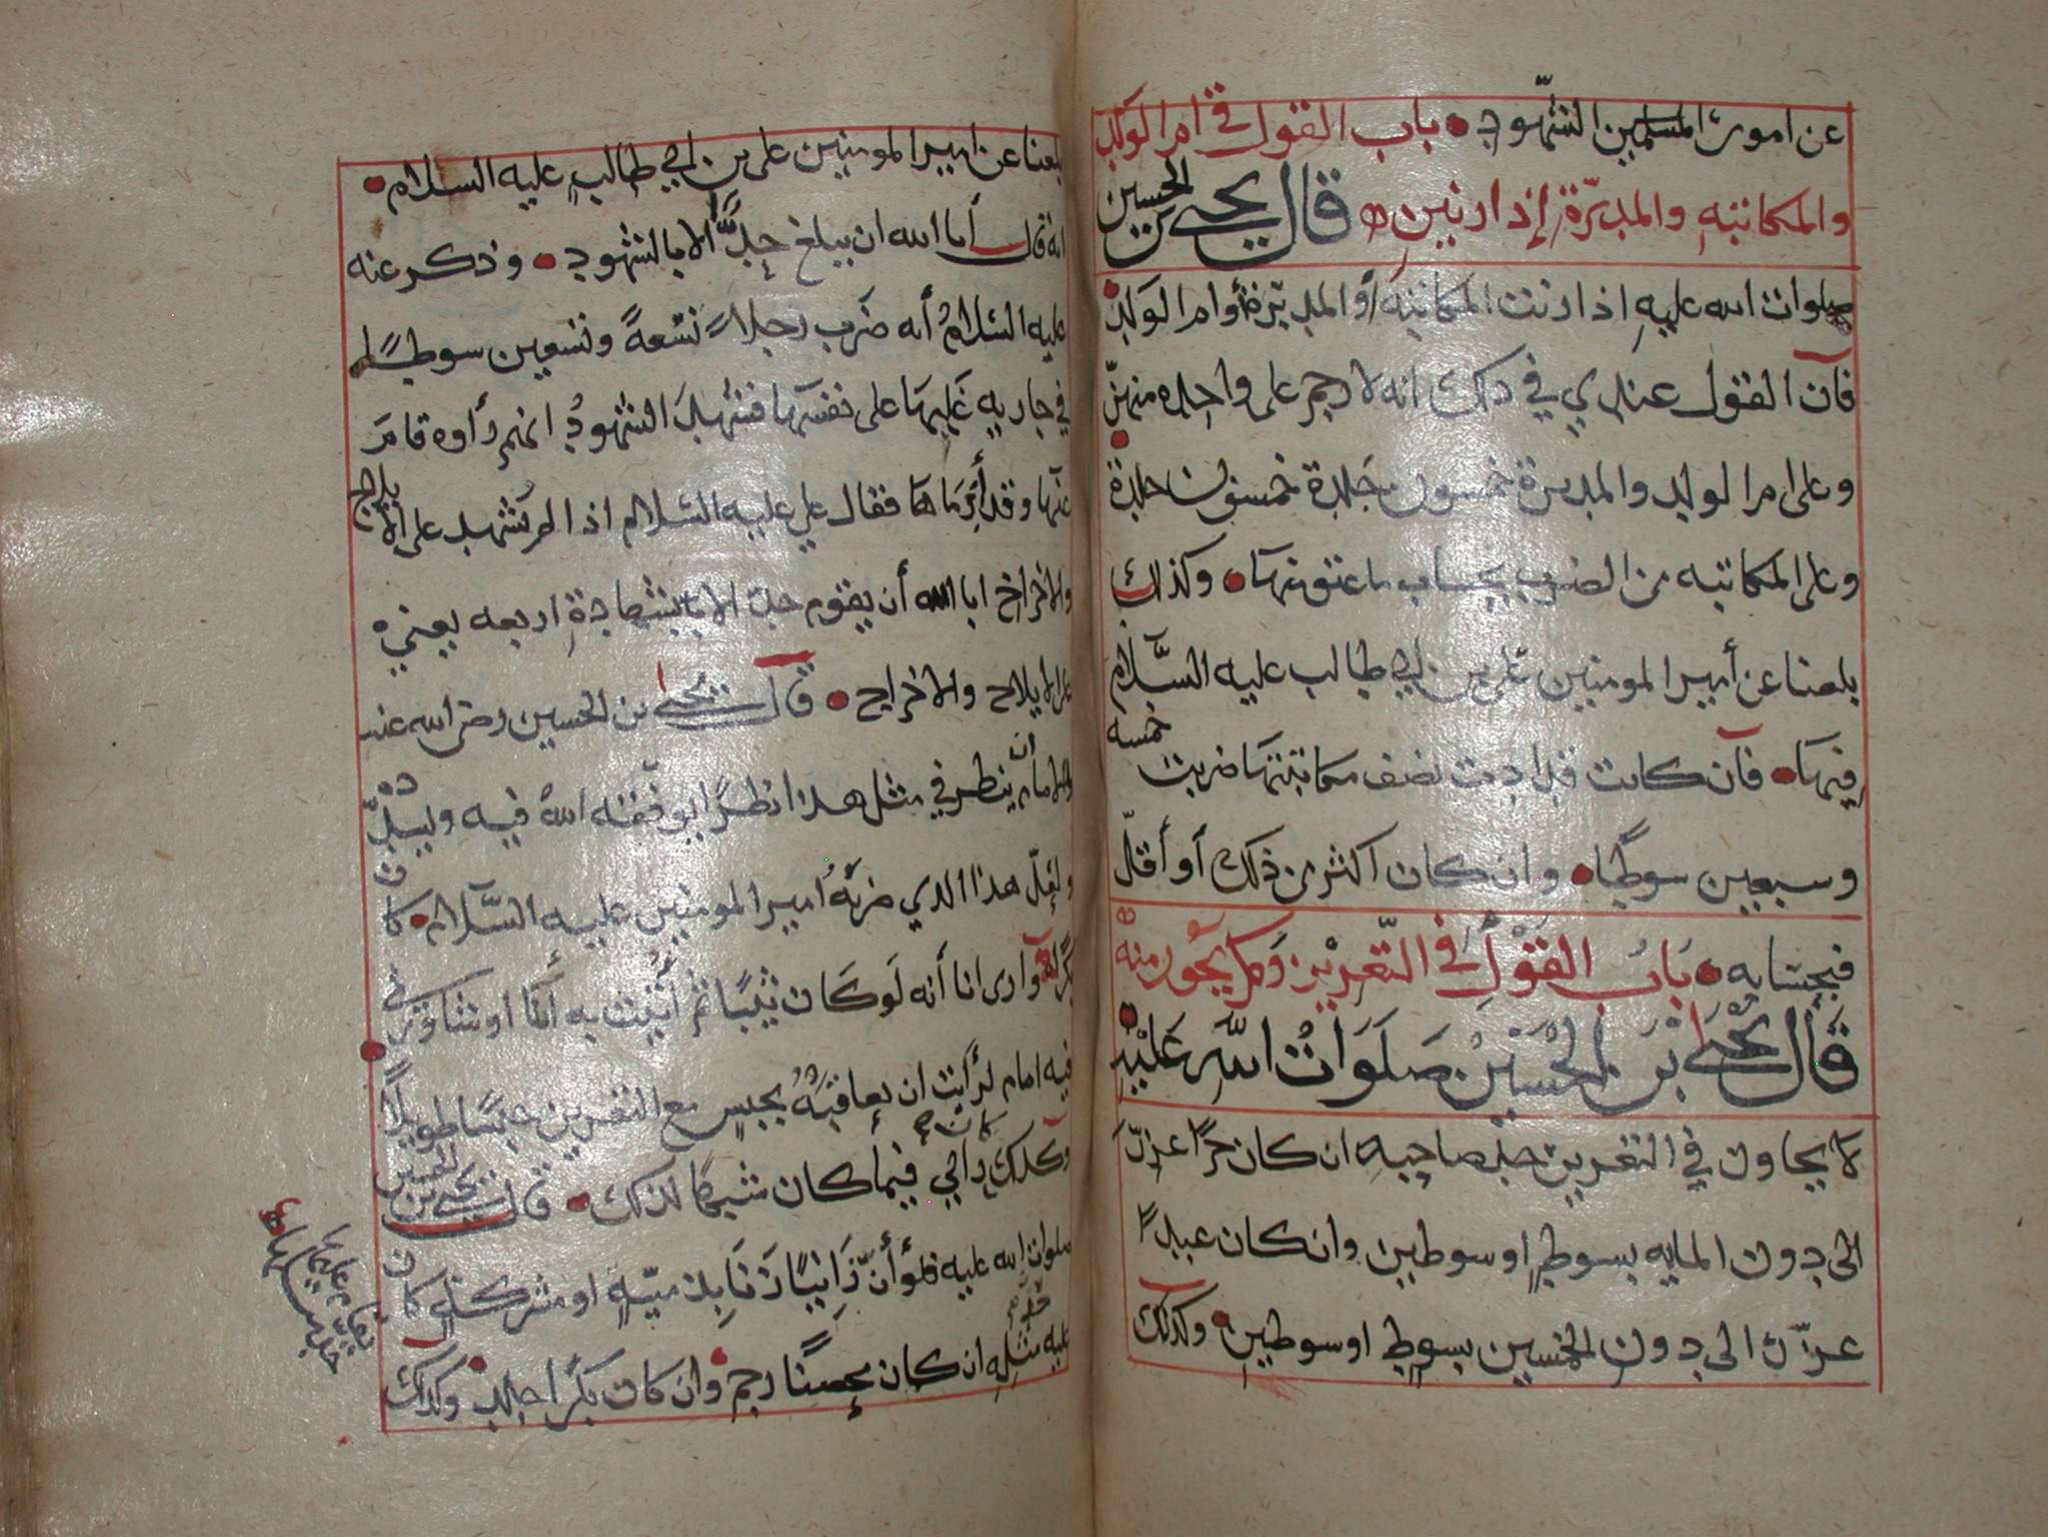 عن امور المسلمين الشهود باب القول في ام الولد
والمكاتبه والمدبرة إذا زنين قال يحيى بن الحسين
صلوات الله عليه اذا زنت المكاتبه أو المدبرة أو ام الولد
فان القول عندي في ذلك انه لا رجم على واحده منهن
وعلى ام الولد والمدبرة خمسون جلدة خمسون جلدة
وعلى المكاتبه من الضرب بحساب ما عتق منها وكذلك
بلغنا عن أمير المومنين علي بن ابي طالب عليه السلام
فيها فان كانت قد ادت نصف مكاتبتها ضربت خمسه
وسبعين سوطا وان كان اكثر من ذلك أو أقل
فبحسابه باب القول في التعزير وكم يجوز منه
قال يحيى بن الحسين صلوات الله عليه
لا يجاوز في التعزير حد صاحبه ان كان حرا عزر
الى دون المايه بسوط او سوطين وان كان عبدا
عزر الى دون الخمسين بسوط او سوطين وكذلك
بلغنا عن امير المومنين علي بن ابي طالب عليه السلام
انه قال أبا الله ان يبلغ حدا الا بالشهود وذكر عنه
عليه السلام أنه ضرب رجلا تسعة وتسعين سوطا
في جاريه غلبها على نفسها فشهد الشهود انهم رأوه قام
عنها وقد فقال علي عليه السلام اذا لم تشهد على الايلاج
والاخراج ابا الله أن يقوم حد الا بشهادة اربعه يعني
على الايلاج والاخراج قال يحيى بن الحسين رضى الله عنه
وللامام ان ينظر في مثل هذا نظرا يوفقه الله فيه ويسدده
ولعل هذا الذي ضربه امير المومنين عليه السلام كان
بكرا وارى انا أنه لو كان ثيبا ثم أتيت به أنا او شاورني
فيه امام لرأيت ان يعاقبه بحبس مع التعزير حبسا طويلا
وكذلك رأيي فيما كان شبيها لذلك قال يحيى بن الحسين
صلوات الله عليه فلو أن زانيا زنا بذميه او مشركه كان
عليه مثله ان كان محصنا رجم وان كان بكرا جلد وكذلك